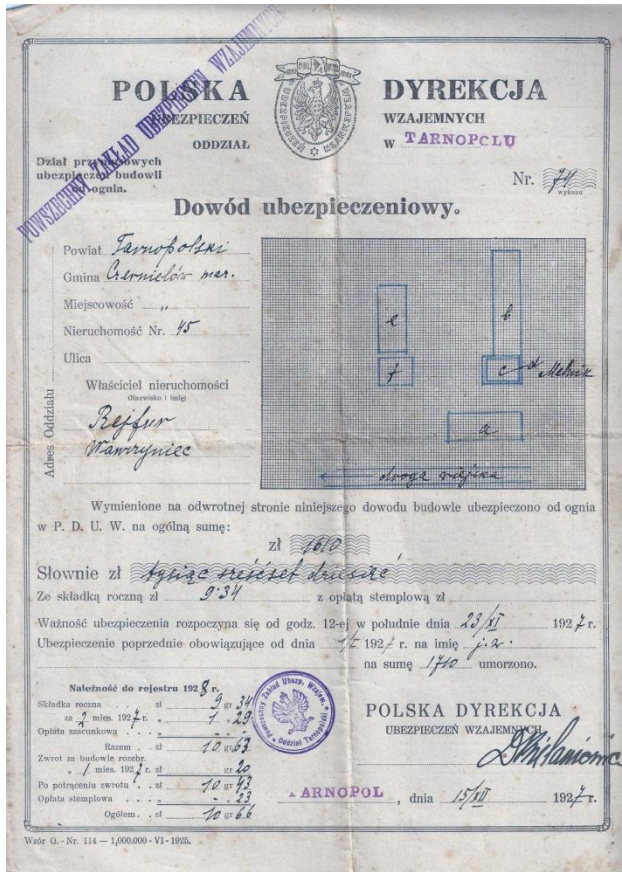 POWSZECHNY ZAKŁAD UBEZPIECZEŃ WZAJEMNYCH
POLSKA DYREKCJA
UBEZPIECZEŃ WZAJEMNYCH
ODDZIAŁ W TARNOPOLU
Dział przymusowych
ubezpieczeń budowli
od ognia.
Nr. 74
wykazu
Dowód ubezpieczeniowy.
Powiat Tarnopolski
Gmina Czernielów mar.
Miejscowość „
Nieruchomość Nr. 45
Ulica
Właściciel nieruchomości
(Nazwisko i imię)
Rejfur
Wawryniec
Adres Oddziału
e
b
f
c
d Melnik
a
droga wiejska
Wymienione na odwrotnej stronie niniejszego dowodu budowle ubezpieczono od ognia
w P. D. U. W. na ogólną sumę:
zł 1610
Słownie zł tysiąc sześćset dziesięć
Ze składką roczną zł 9·34 z opłatą stemplową zł
Ważność ubezpieczenia rozpoczyna się od godz. 12-ej w południe dnia 23/XI 1927 r.
Ubezpieczenie poprzednie obowiązujące od dnia 1/I 1927 r. na imię j.w.
na sumę 1710 umorzono.
Należność do rejestru 1928 r.
Składka roczna zł 9 gr 34
za 2 mies. 1927 r. „ 1 „ 29
Opłata szacunkowa „
Razem zł 10 gr 63
Zwrot za budowlę rozebr.
„ 1 mies. 1927 r. zł gr 20
Po potrąceniu zwrotu zł 10 gr 43
Opłata stemplowa „ „ 23
Ogółem zł 10 gr 66
Powszechny Zakład Ubezp. Wzajem.
Oddział Tarnopolski
POLSKA DYREKCJA
UBEZPIECZEŃ WZAJEMNYCH
ARNOPOL, dnia 15/XII 1927 r.
Wzór O. - Nr. 114 — 1,000.000 - VI - 1925.